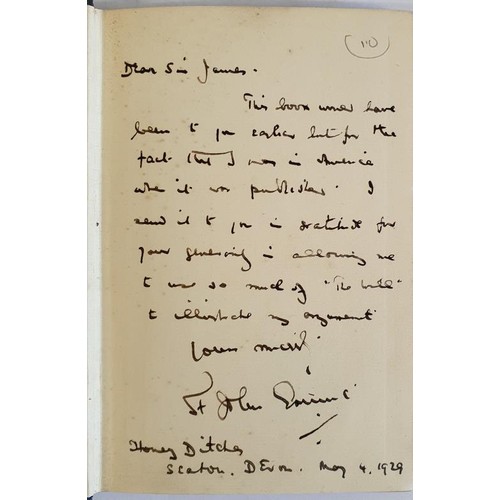 10
Dear Sir James.
This book would have
been to you earlier but for the
fact that I was in America
when it was published. I
send it to you in gratitude for
your generosity in allowing me
to use so much of "The Will"
to illustrate my argument
Yours
St John Ervine
Honey Ditches
Seaton. Devon. May 4. 1929